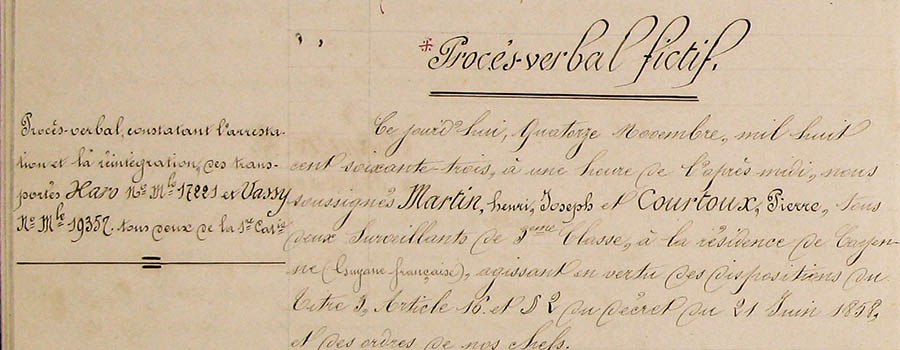 * Procès-verbal fictif.
Procès-verbal, constatant l'arresta-
tion et la réintégration, des trans-
portés Haro Nº Mle 17221 et Vassy
Nº Mle 19357. tous deux de la 1re Catie
Ce jourd'hui, Quatorze Novembre, mil huit
cent soixante-trois, à une heure de l'après midi, nous
soussignés Martin, henri, Joseph et Courtoux, Pierre, tous
deux Surveillants de 3eme Classe, à la résidence de Cayen-
ne (Guyane française), agissant en vertu des dispositions du
Titre 3, Article 16. et § 2 du décret du 21 Juin 1858,
et des ordres de nos chefs.